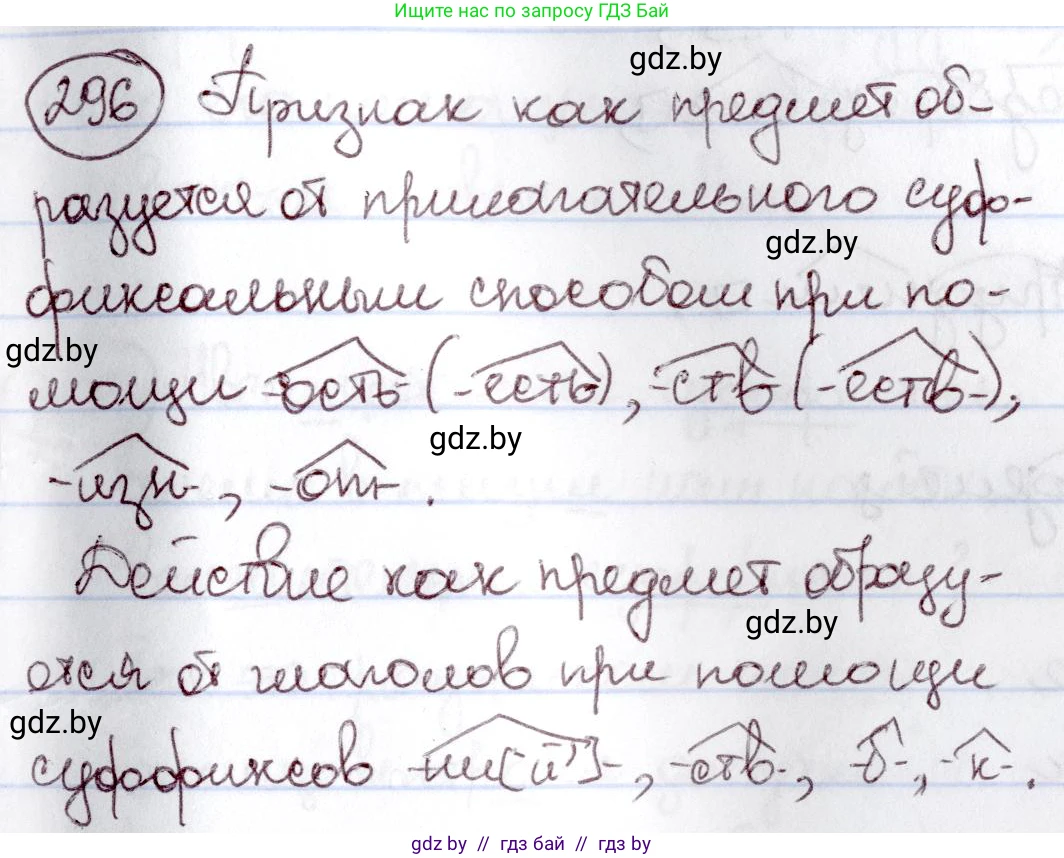 Ищите нас по запросу ГДЗ Бай
gdz.by
296 Признак как предмет об-
разуется от прилагательного суф-
gdz.by
фиксальным способом при по-
gdz.by
мощи -ость- (-есть), -ств- (-еств-),
gdz.by
-изн-, -от-.
Действие как предмет образу-
gdz.by
ется от глаголов при помощи
gdz.by
суффиксов -ни[й']-, -ств-, -б-, -к-.
gdz.by // гдз бай // гдз by